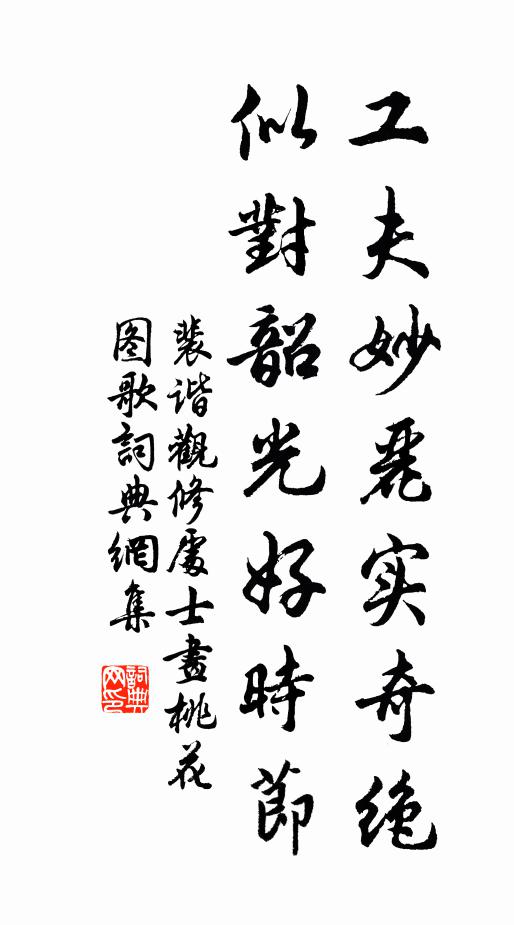 工夫妙麗实奇绝
似對韶光好時節
裴谐觀修處士畫桃花
图歌詞典網集
詞典网印